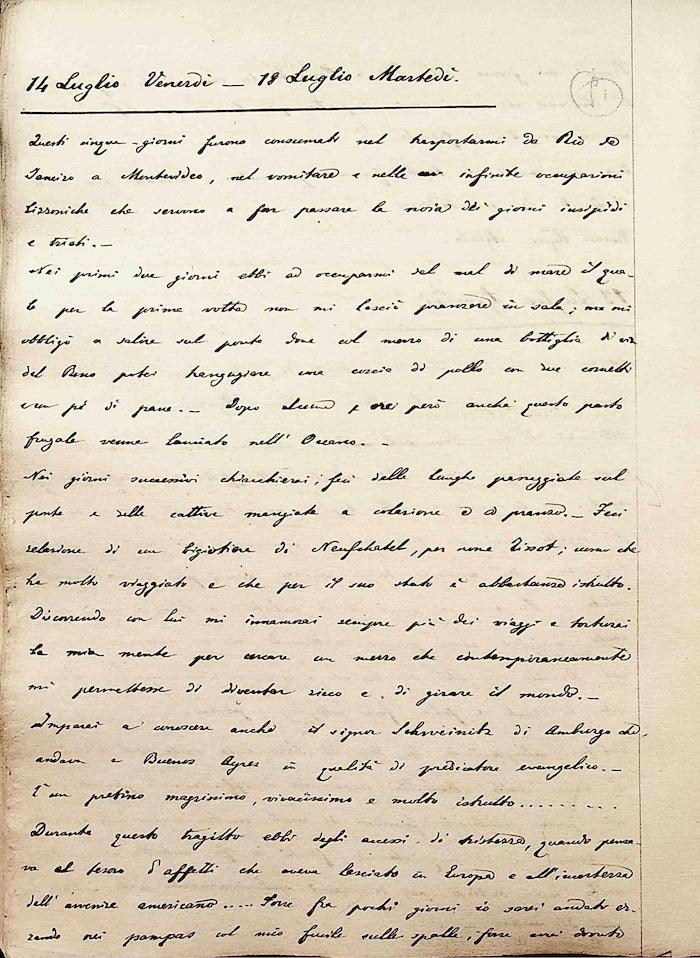 14 Luglio Venerdì — 18 Luglio Martedì.
Questi cinque giorni furono consumati nel trasportarmi da Rio de
Janeiro a Montevideo, nel vomitare e nelle infinite occupazioni
che servono a far passare la noia dei giorni insipidi
e tristi. —
Nei primi due giorni ebbi ad occuparmi del mal di mare il qua-
le per la prima volta non mi lasciò pranzare in sala; ma mi
obbligò a salire sul ponte dove col mezzo di una bottiglia di vin
del Reno potei trangugiare una coscia di pollo con due cornetti
e un pò di pane. — Dopo alcune ore però anche questo pasto
frugale venne lanciato nell' Oceano. —
Nei giorni successivi chiacchierai; feci delle lunghe passeggiate sul
ponte e delle cattive mangiate a colazione e a pranzo. — Feci
relazione di un bigiottiere di Neufchatel, per nome Tissot; uomo che
ha molto viaggiato e che per il suo stato è abbastanza istrutto.
Discorrendo con lui mi innamorai sempre più dei viaggi e torturai
la mia mente per cercare un mezzo che contemporaneamente
mi permettesse di diventar ricco e di girare il mondo. —
Imparai a conoscere anche il signor Schweinitz di Amburgo che
andava a Buenos Ayres in qualità di predicatore evangelico. —
È un pretino magrissimo, vivacissimo e molto istrutto.........
Durante questo tragitto ebbi degli accessi di tristezza, quando pensa-
va al tesoro d'affetti che aveva lasciato in Europa e all'incertezza
dell' avvenire americano..... Forse fra pochi giorni io sarei andato er-
rando nei pampas col mio fucile sulle spalle, forse avrei dovuto